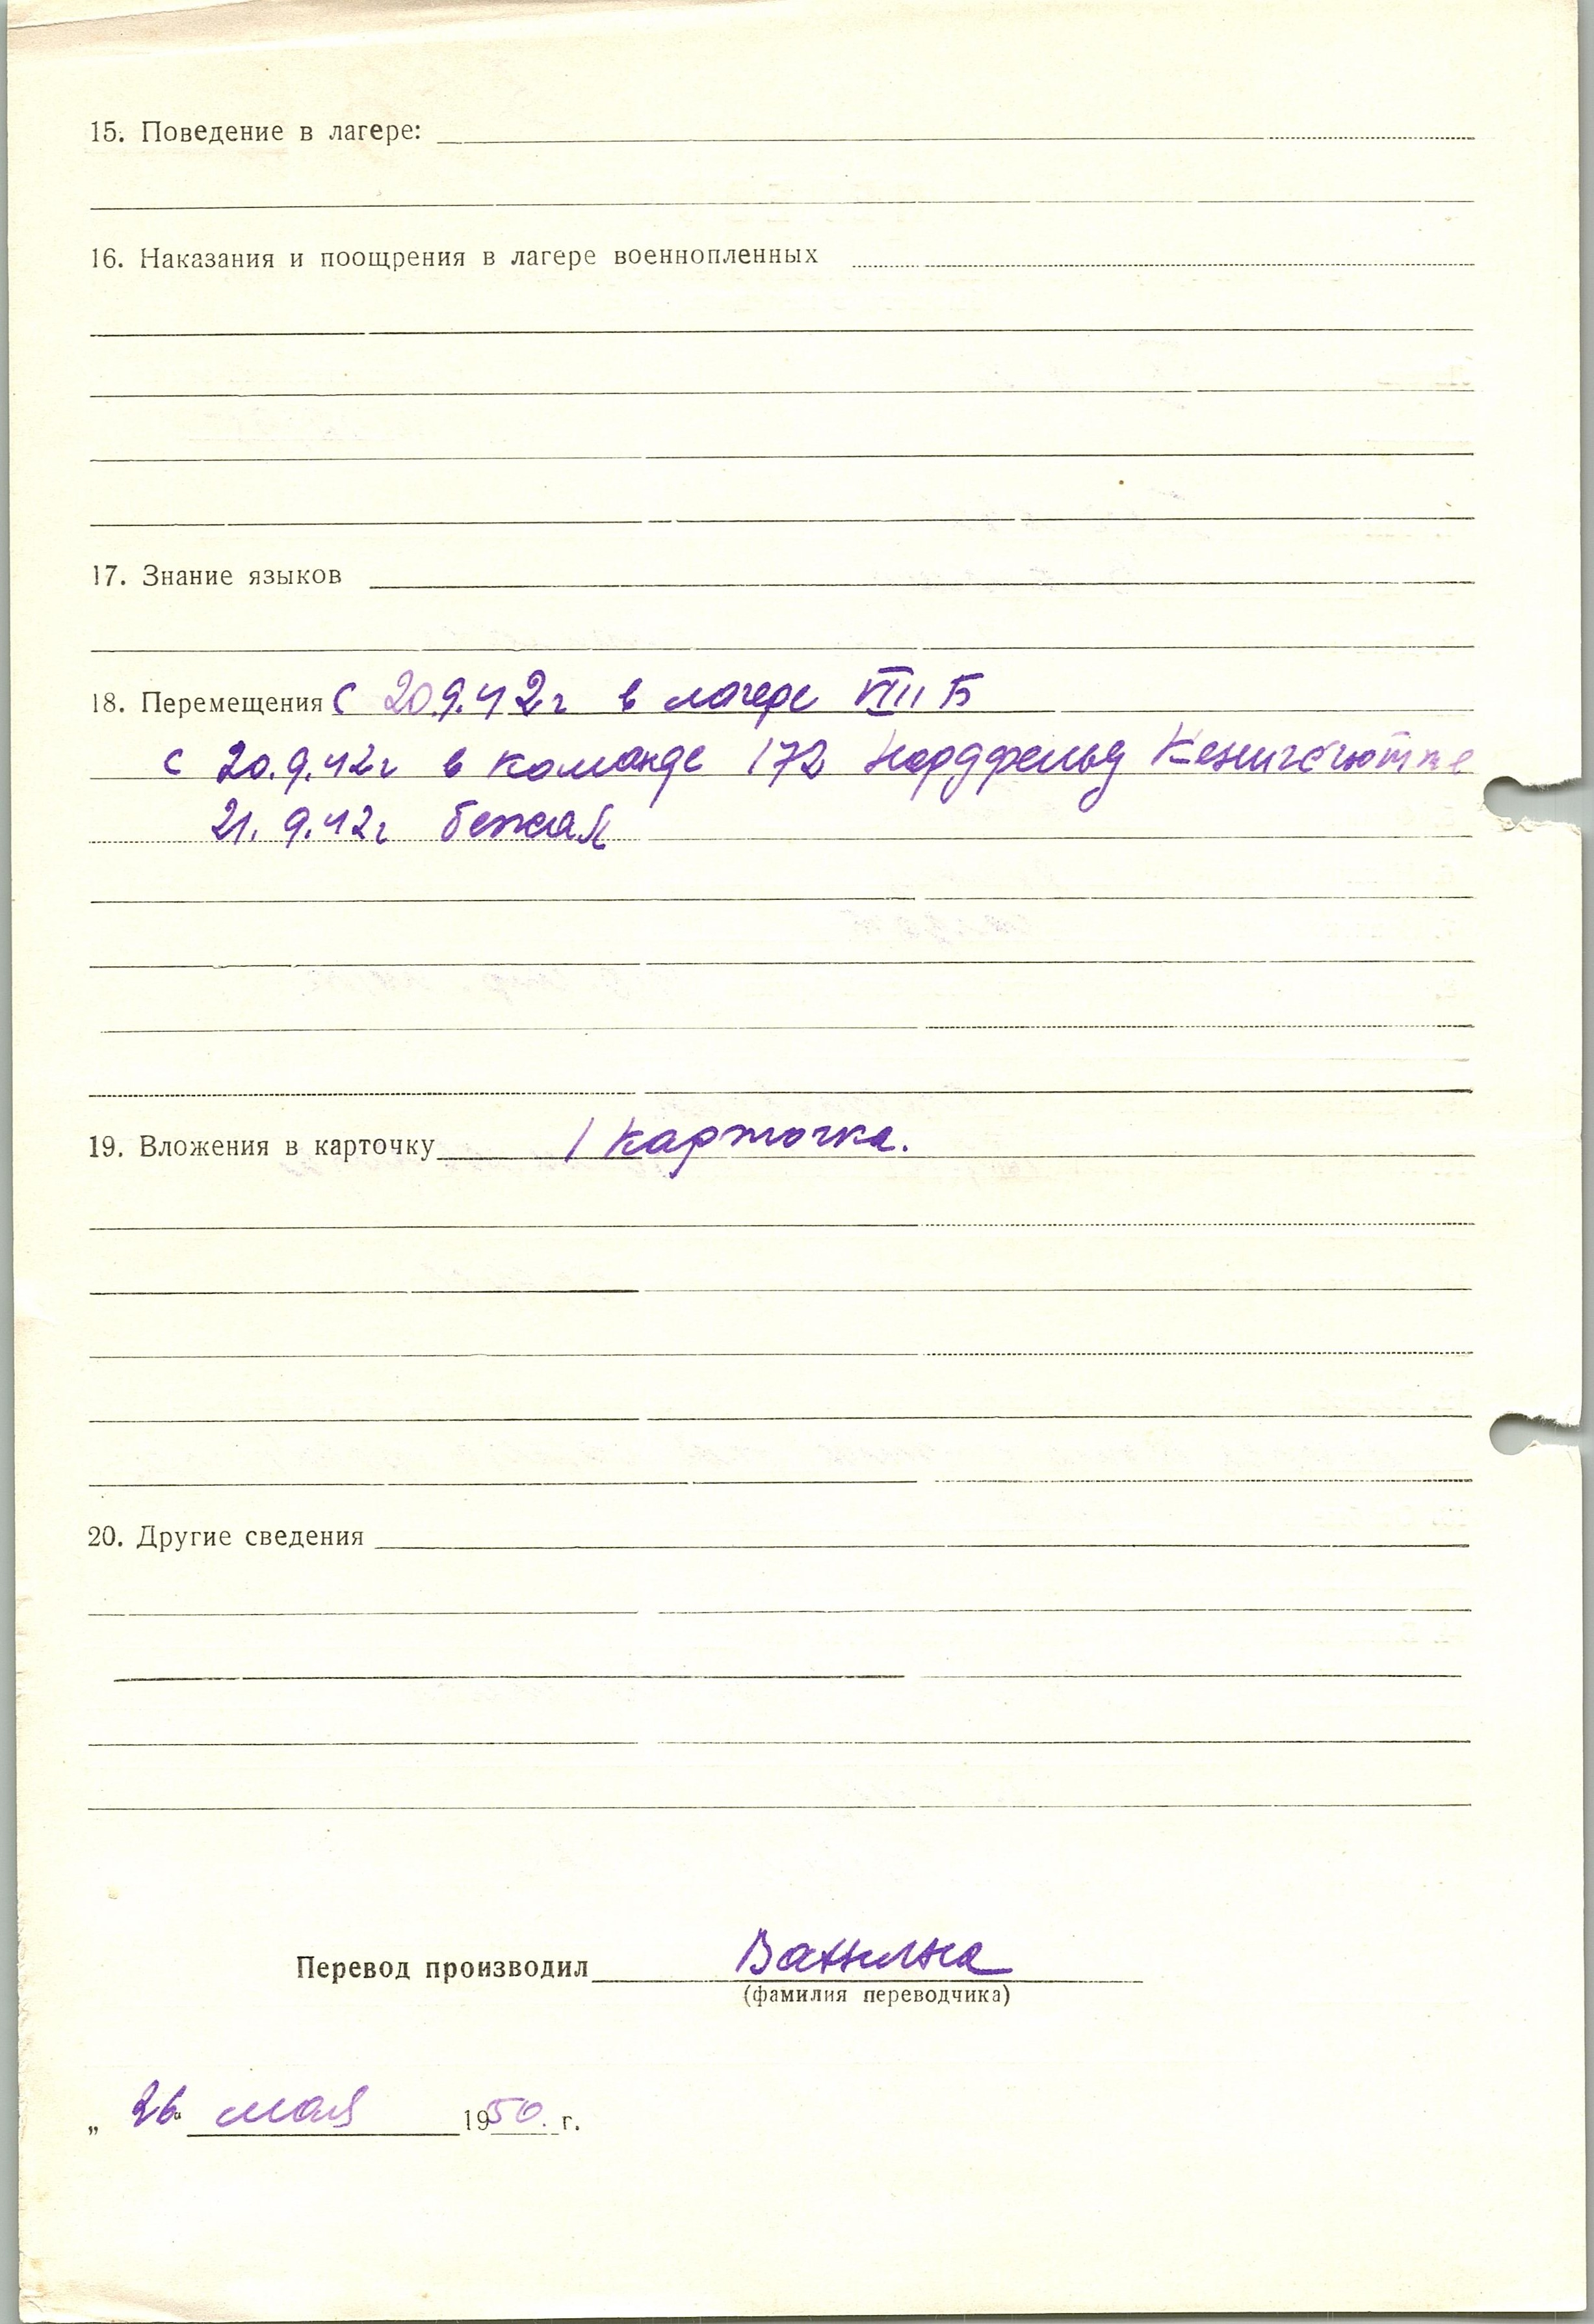 15. Поведение в лагере:
16. Наказания и поощрения в лагере военнопленных
17. Знание языков
18. Перемещения С 20.9.42г в лагере VIII Б
с 20.9.42г в команде 172 Нордфельд Кенигсгютте
21.9.42г бежал
19. Вложения в карточку 1 карточка.
20. Другие сведения
Перевод производил
(фамилия переводчика)
„ 26 " мая 1950. г.